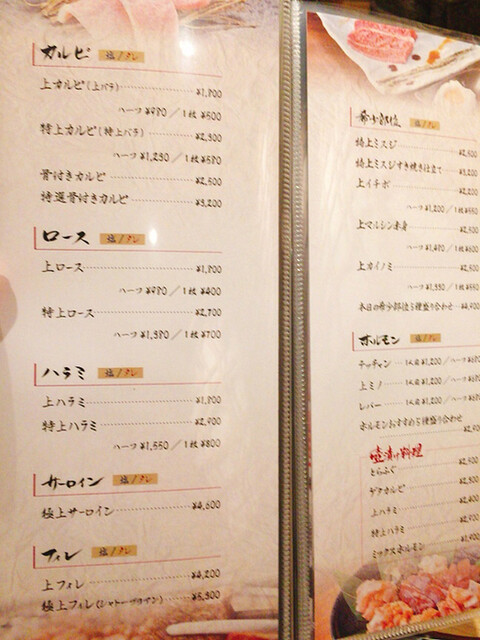 カルビ 塩/タレ
上カルビ(上バラ) ¥1,800
ハーフ ¥980 / 1枚 ¥500
特上カルビ(特上バラ) ¥2,300
ハーフ ¥1,230 / 1枚 ¥580
骨付きカルビ ¥2,500
特選骨付きカルビ ¥3,200
ロース 塩/タレ
上ロース ¥1,800
ハーフ ¥980 / 1枚 ¥400
特上ロース ¥2,700
ハーフ ¥1,380 / 1枚 ¥700
ハラミ 塩/タレ
上ハラミ ¥1,800
特上ハラミ ¥2,900
ハーフ ¥1,550 / 1枚 ¥800
サーロイン 塩/タレ
極上サーロイン ¥4,600
フィレ 塩/タレ
上フィレ ¥4,200
極上フィレ(シャトーブリアン) ¥5,300
希少部位 塩/タレ
特上ミスジ ¥2,500
特上ミスジすき焼き仕立て ¥3,200
上イチボ ¥2,200
ハーフ ¥1,200 / 1枚 ¥550
上マルシン赤身
ハーフ ¥1,490 / 1枚
上カイノミ ¥2,500
ハーフ ¥1,350 / 1枚
本日の希少部位5種盛り合わせ ¥4,900
ホルモン 塩/タレ
テッチャン 1人前 ¥1,200 / ハーフ
上ミノ 1人前 ¥1,200 / ハーフ
レバー 1人前 ¥1,200 / ハーフ
ホルモンおすすめ5種盛り合わせ
壺漬け料理
とらふぐ ¥2,500
ゲタカルビ
上ハラミ
特上ハラミ ¥2,900
ミックスホルモン ¥1,900